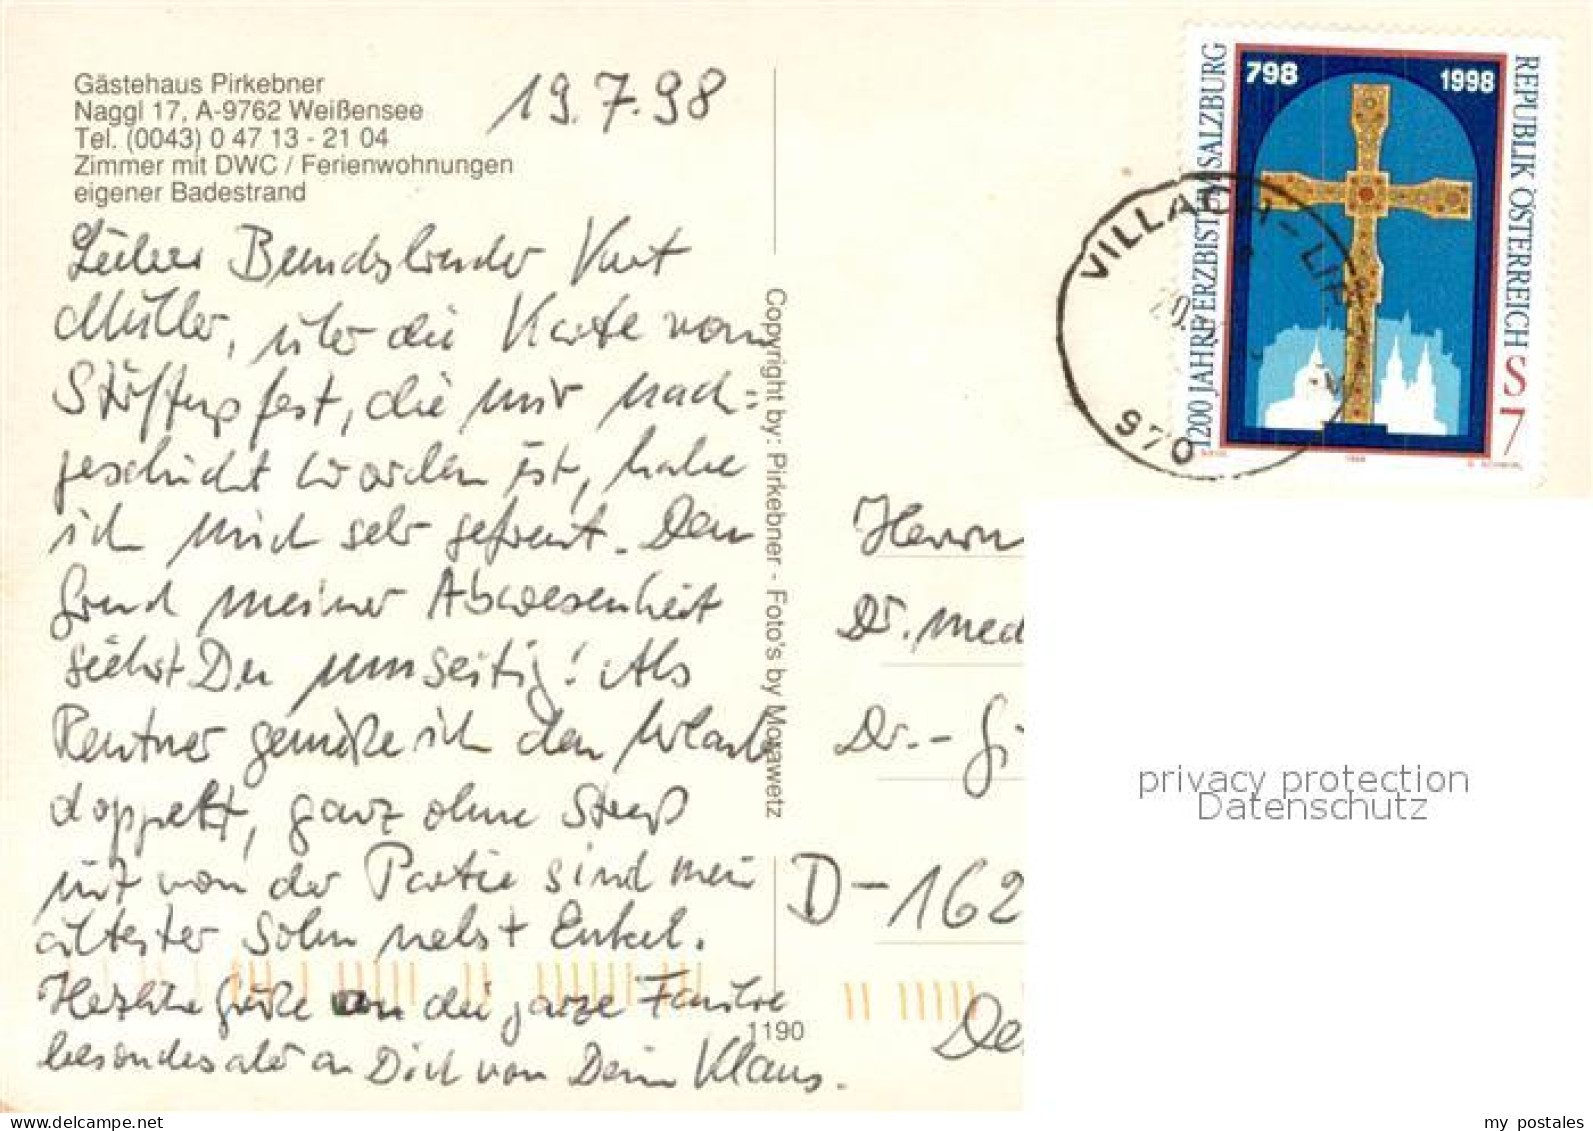 Gästehaus Pirkebner
Naggl 17, A-9762 Weißensee
Tel. (0043) 0 47 13 - 21 04
Zimmer mit DWC / Ferienwohnungen
eigener Badestrand
19.7.98
Lieber Bundsbruder Kurt
Müller, über die Karte vom
Stiftungsfest, die mir nach=
geschickt worden ist, habe
ich mich sehr gefreut. Den
Grund meiner Abwesenheit
siehst Du umseitig! Als
Rentner genieße ich den Urlaub
doppelt, ganz ohne Streß
mit von der Partie sind mein
ältester Sohn nebst Enkel.
Herzliche Grüße an die ganze Familie
besonders aber an Dich von Dein Klaus.
Copyright by: Pirkebner - Foto's by Morawetz
1190
798
1998
1200 JAHRE ERZBISTUM SALZBURG
REPUBLIK ÖSTERREICH
S 7
VILLACH-
970
Herrn
Dr. med
Dr.- Gi
D-162
De
privacy protection
Datenschutz
delcampe.net
my_postales